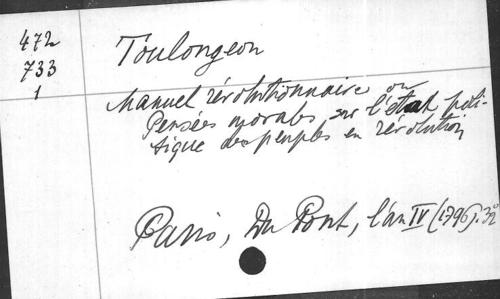 472
733
1
Toulongeon
Manuel révolutionnaire ou
Pensées morales, sur l'état poli-
tique des peuples en révolution
Paris, Du Pont, l'an IV (1796). 32°